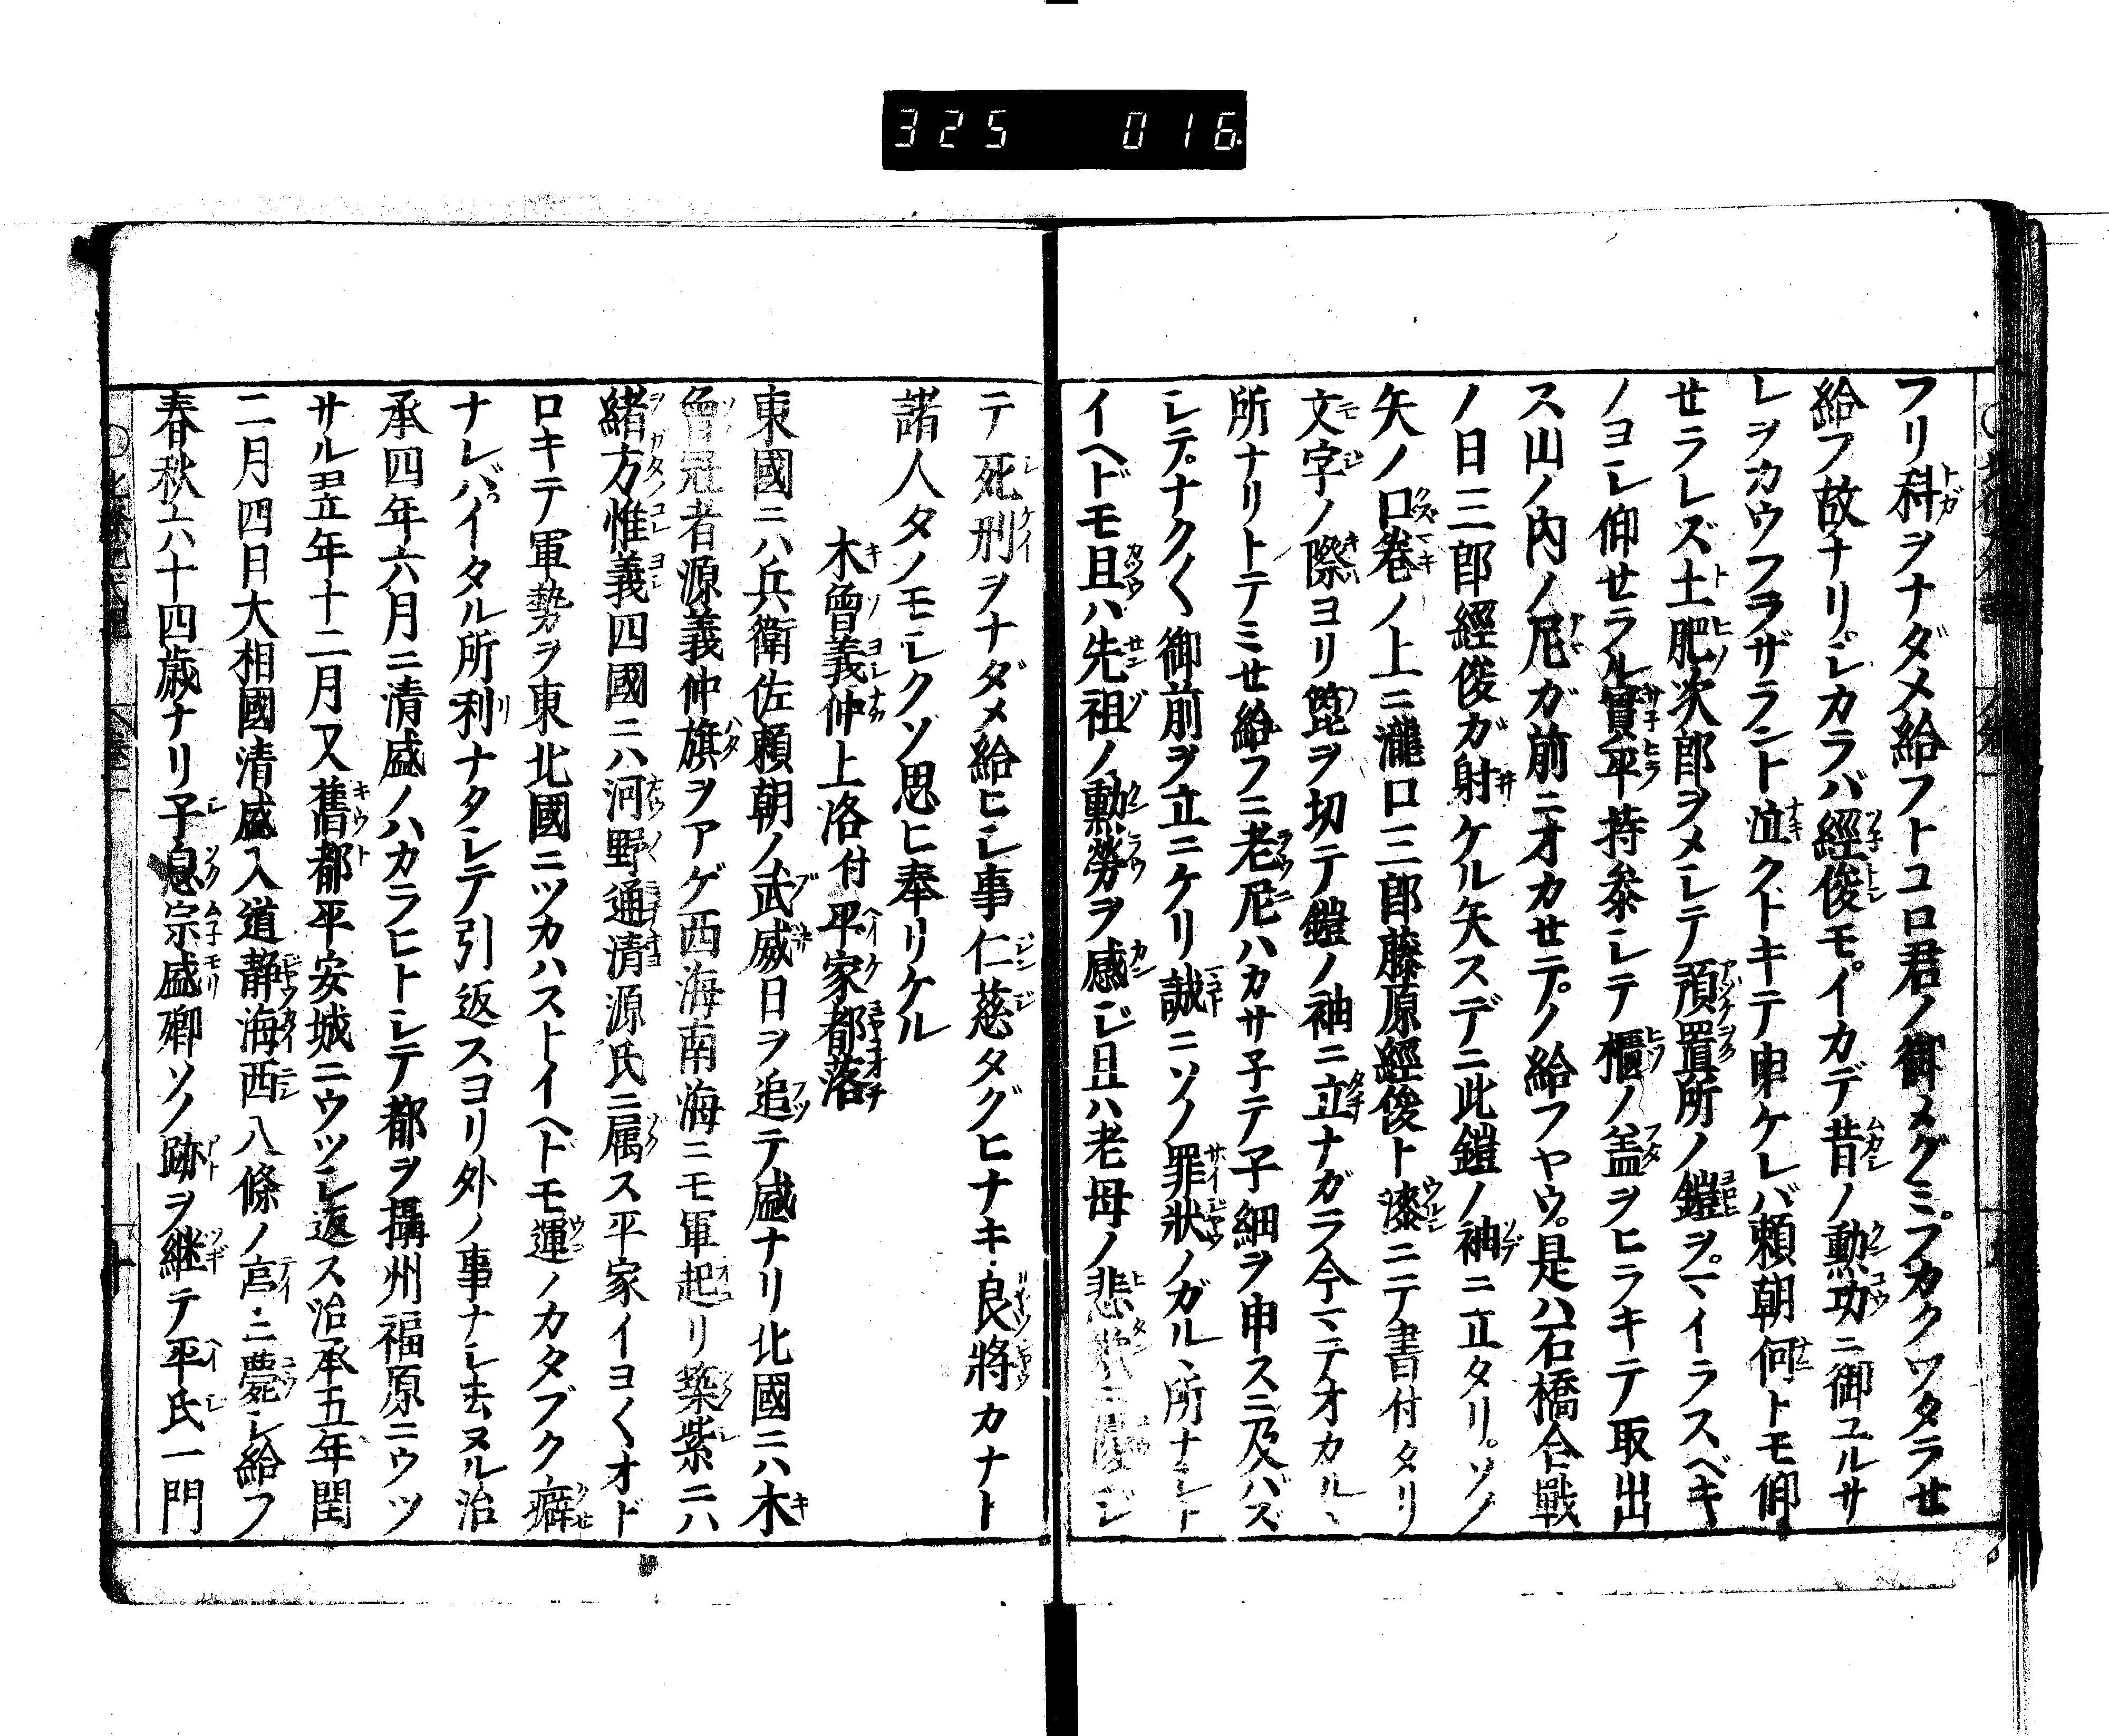 325 016
フリ科ヲナダメ給フトコロ君ノ御メグミフカクワタラせ
給フ故ナリシカラバ經俊モイカデ昔ノ勲功ニ御ユルサ
レヲカウフラザラント泣クドキテ申ケレバ頼朝何トモ仰
せラレズ土肥次郎ヲメシテ預置所ノ鎧ヲマイラスベキ
ノヨシ仰せラル實平持參シテ櫃ノ盖ヲヒラキテ取出
ス山ノ内ノ尼ガ前ニオカせテノ給フヤウ是ハ石橋合戰
ノ日三郎經俊ガ射ケル矢スデニ此鎧ノ袖ニ立タリソノ
矢ノ口巻ノ上ニ瀧口三郎藤原經俊ト漆ニテ書付タリ
文字ノ際ヨリ箆ヲ切テ鎧ノ袖ニ立ナガラ今マデオカルヽ
所ナリトテミせ給フニ老尼ハカサ子テ子細ヲ申スニ及バズ
シテナク〳〵御前ヲ立ニケリ誠ニソノ罪狀ノガルヽ所ナシト
イヘドモ且ハ先祖ノ勲勞ヲ感ジ且ハ老母ノ悲歎ニ優ジ
テ死刑ヲナダメ給ヒシ事仁慈タグヒナキ良將カナト
諸人タノモシクソ思ヒ奉リケル
木曾義仲上洛付平家都落
東國ニハ兵衛佐頼朝ノ武威日ヲ追テ盛ナリ北國ニハ木
曾冠者源義仲旗ヲアゲ西海南海ニモ軍起リ築紫ニハ
緒方惟義四國ニハ河野通清源氏ニ属ス平家イヨ〳〵オド
ロキテ軍勢ヲ東北國ニツカハストイヘドモ運ノカタブク癖
ナレバイタル所利ナタシテ引返スヨリ外ノ事ナシ去ヌル治
承四年六月ニ清盛ノハカラヒトシテ都ヲ攝州福原ニウツ
サル翌年十二月又舊都平安城ニウツシ返ス治承五年閏
二月四日大相國清盛入道静海西八條ノ亭ニ薨シ給フ
春秋六十四歳ナリ子息宗盛卿ソノ跡ヲ継テ平氏一門